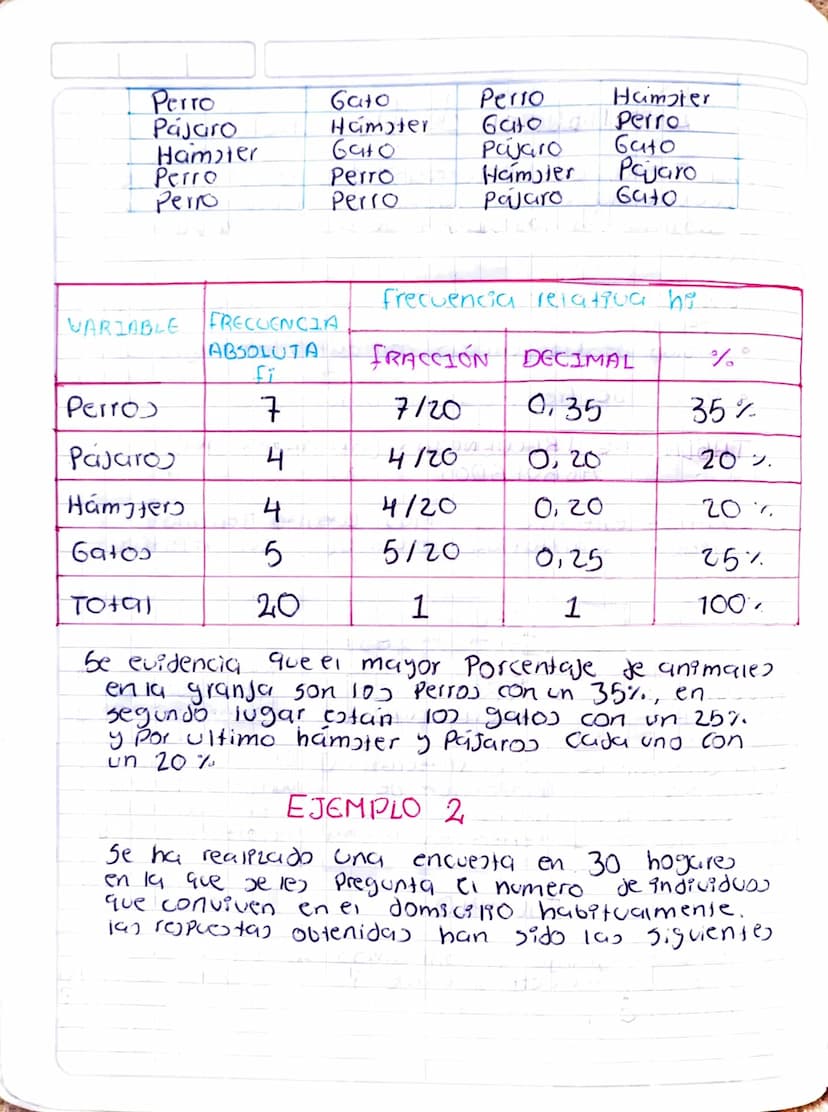 Perro Gato Perro Hámster
Pájaro Hámster Gato Perro
Hámster Gato Pájaro Gato
Perro Perro Hámster Pájaro
Perro Perro Pájaro Gato
VARIABLE FRECUENCIA ABSOLUTA fi frecuencia relativa hi
FRACCIÓN DECIMAL %
Perros 7 7/20 0,35 35%
Pájaros 4 4/20 0,20 20%
Hámsters 4 4/20 0,20 20%
Gatos 5 5/20 0,25 25%
Total 20 1 1 100%
Se evidencia que el mayor Porcentaje de animales
en la granja son los Perros con un 35%, en
segundo lugar están los gatos con un 25%
y Por ultimo hámster y Pájaros cada uno con
un 20%
EJEMPLO 2
Se ha realizado una encuesta en 30 hogares
en la que se les Pregunta el numero de individuos
que conviven en el domicilio habitualmente.
las respuestas obtenidas han sido las siguientes